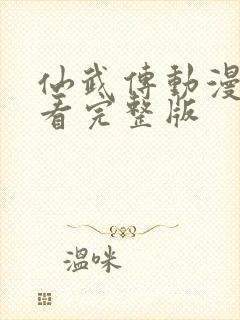 仙武傳動漫
看完整版
溫咪